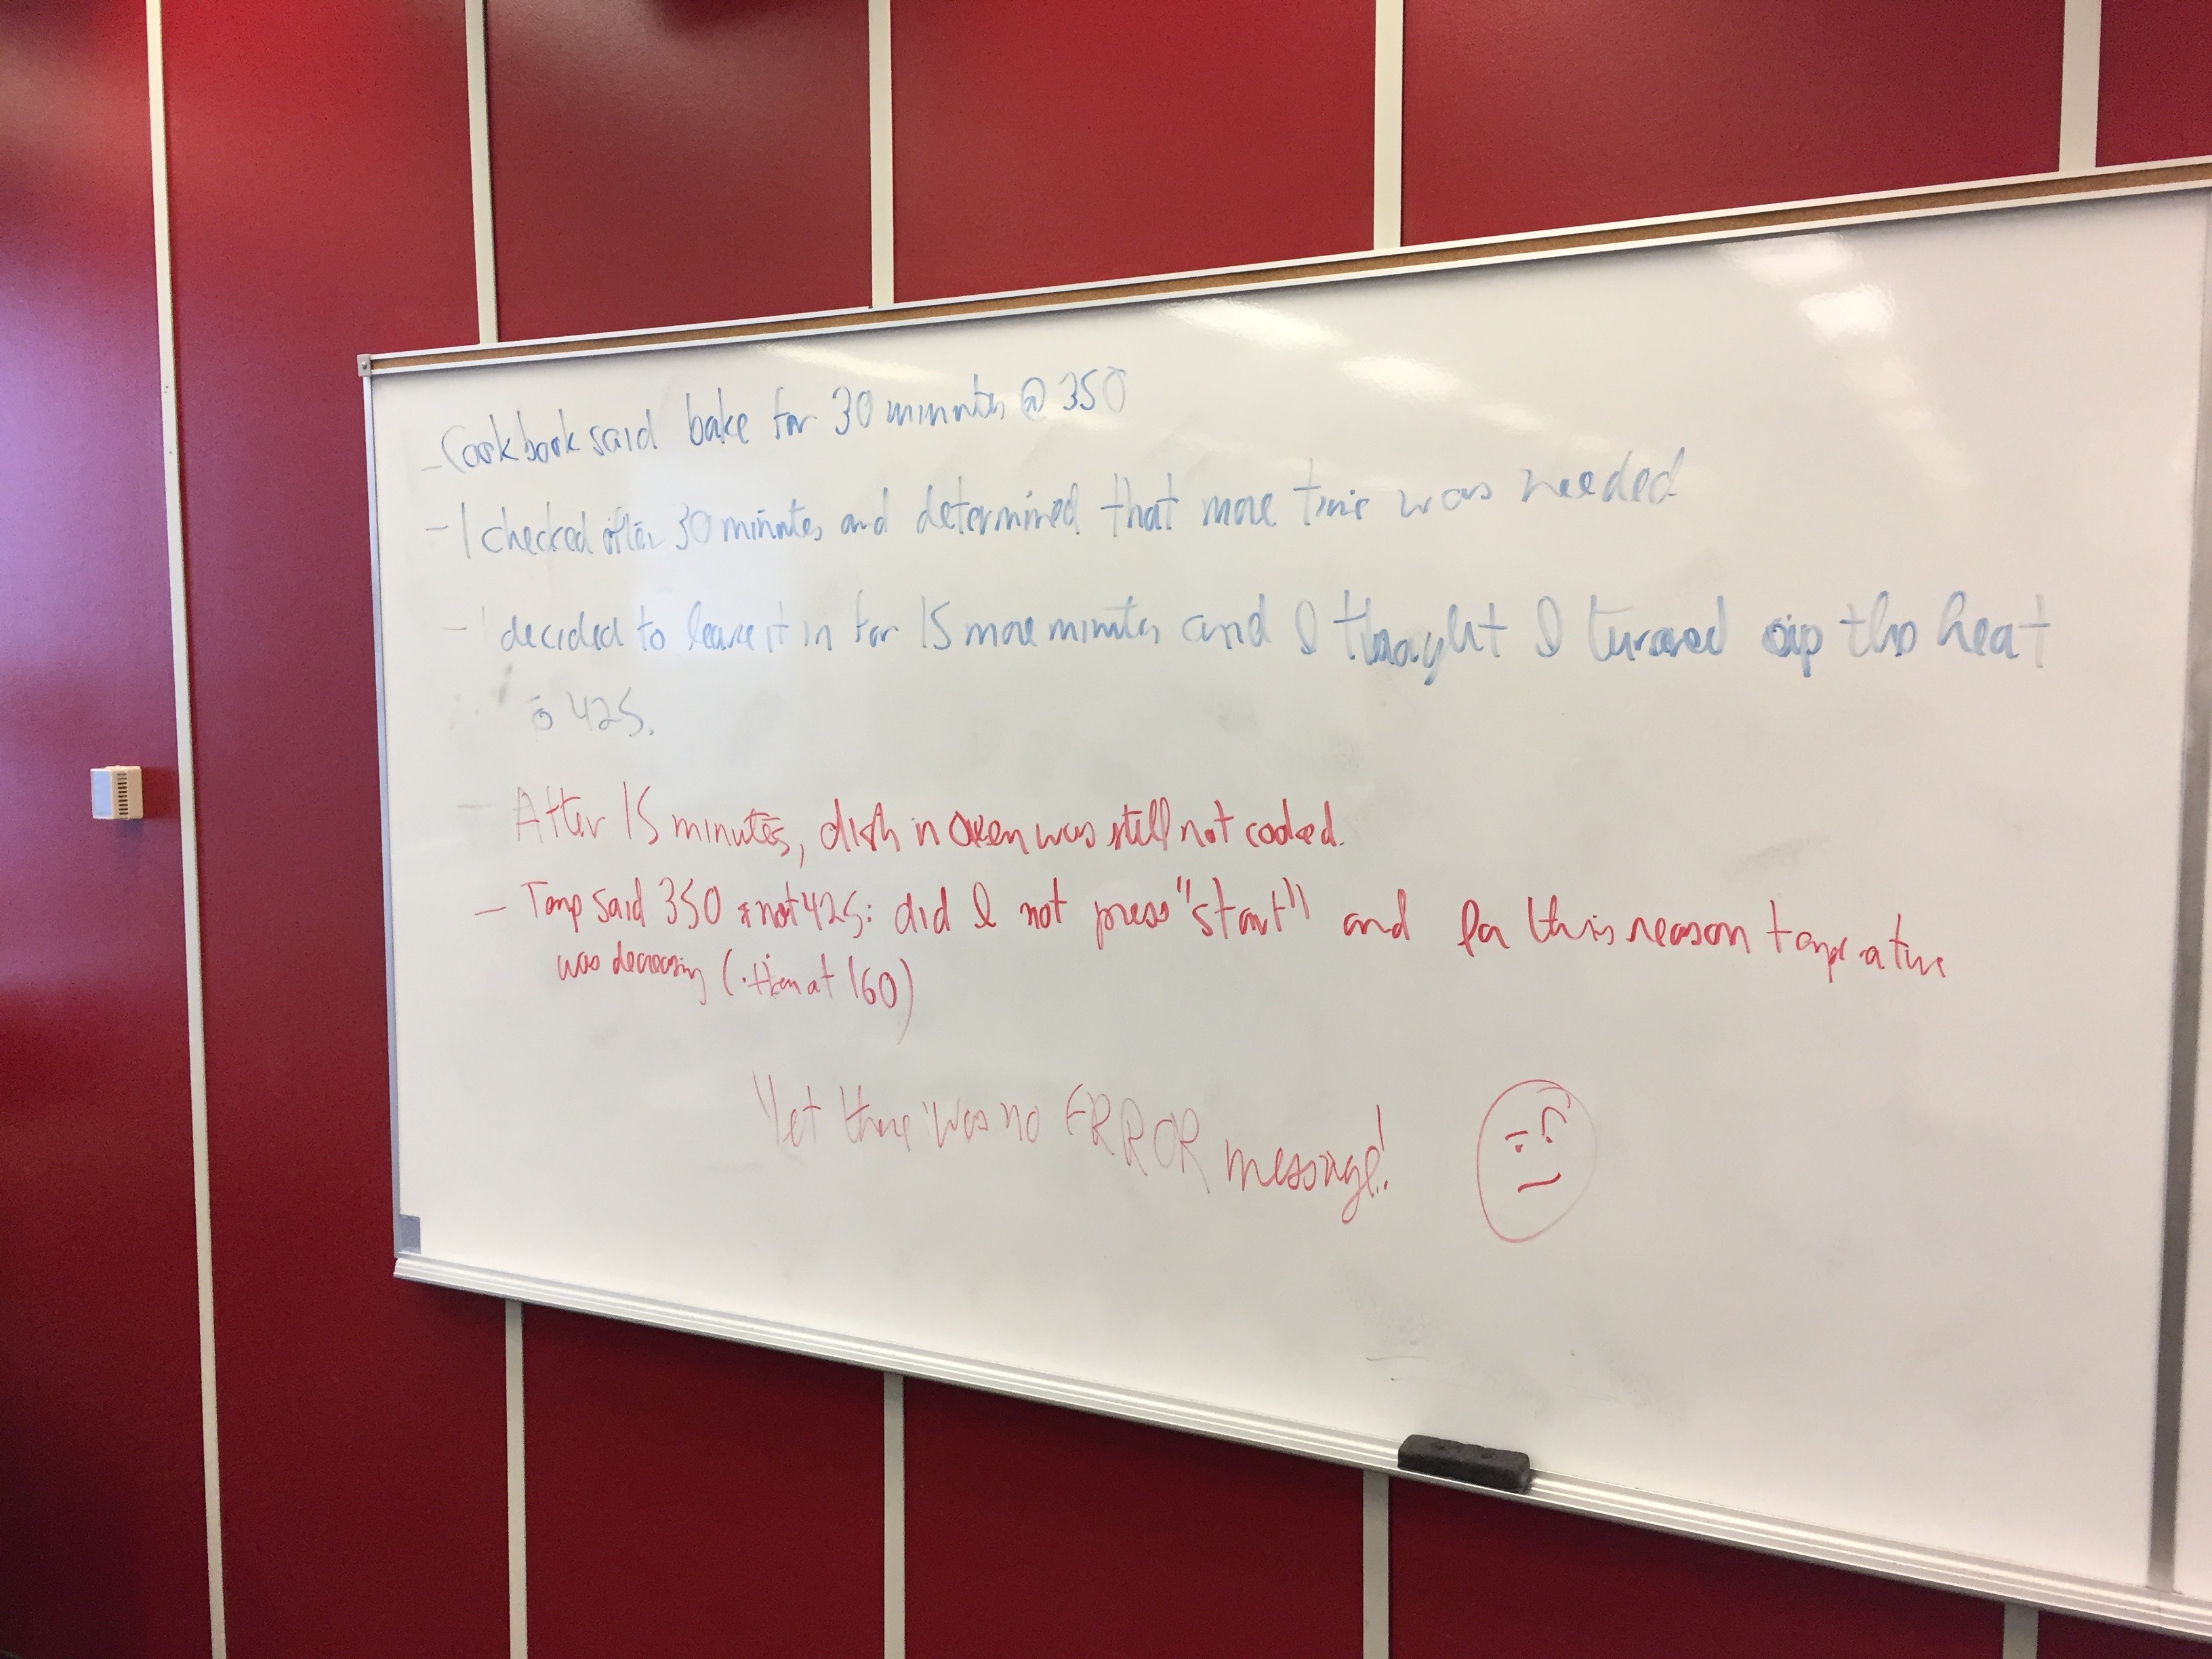 - Cookbook said bake for 30 minutes @ 350
- I checked after 30 minutes and determined that more time was needed
- I decided to leave it in for 15 more minutes and I thought I turned up the heat
to 425.
- After 15 minutes, dish in oven was still not cooked.
- Temp said 350 not 425: did I not press "start" and for this reason temperature
was decreasing (then at 160)
Yet there was no ERROR message!